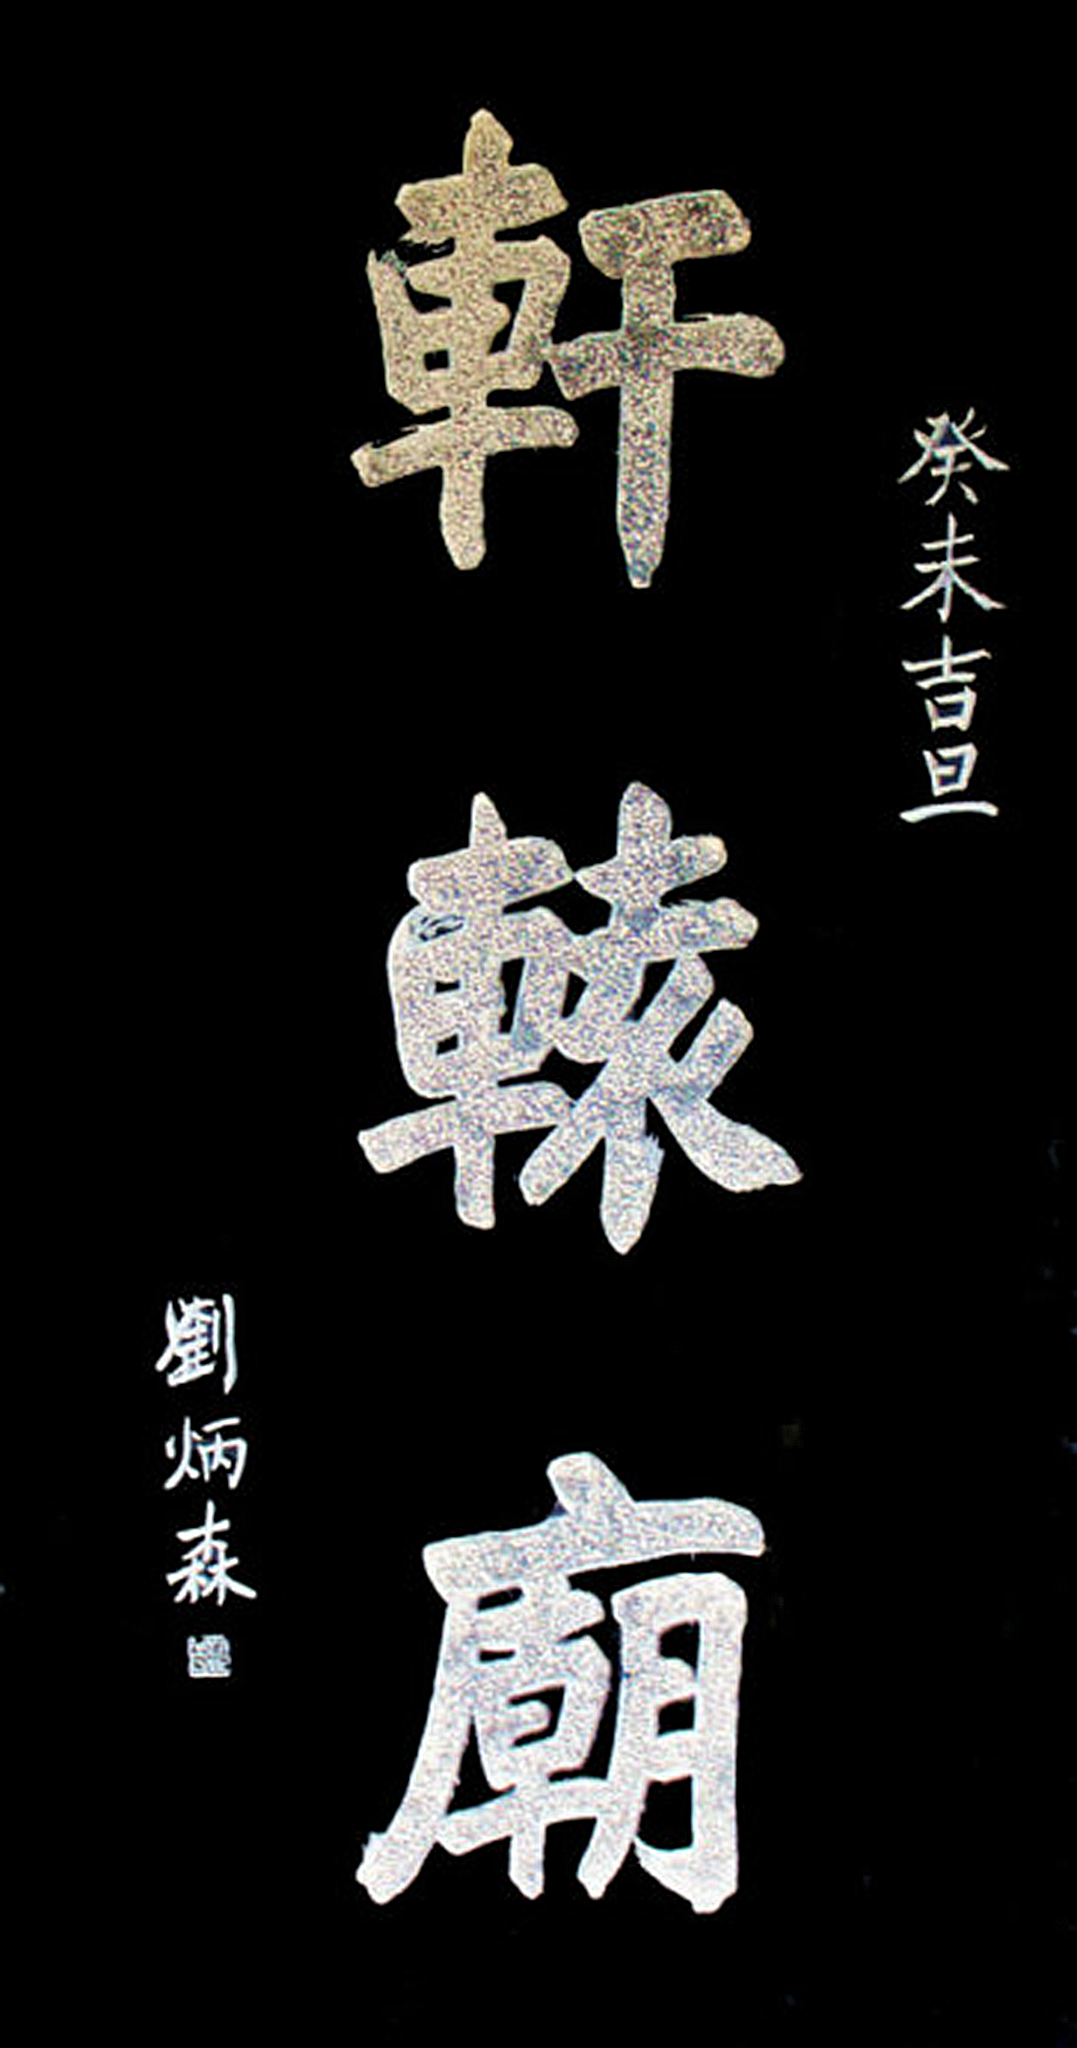 癸未吉旦
軒轅廟
劉炳森